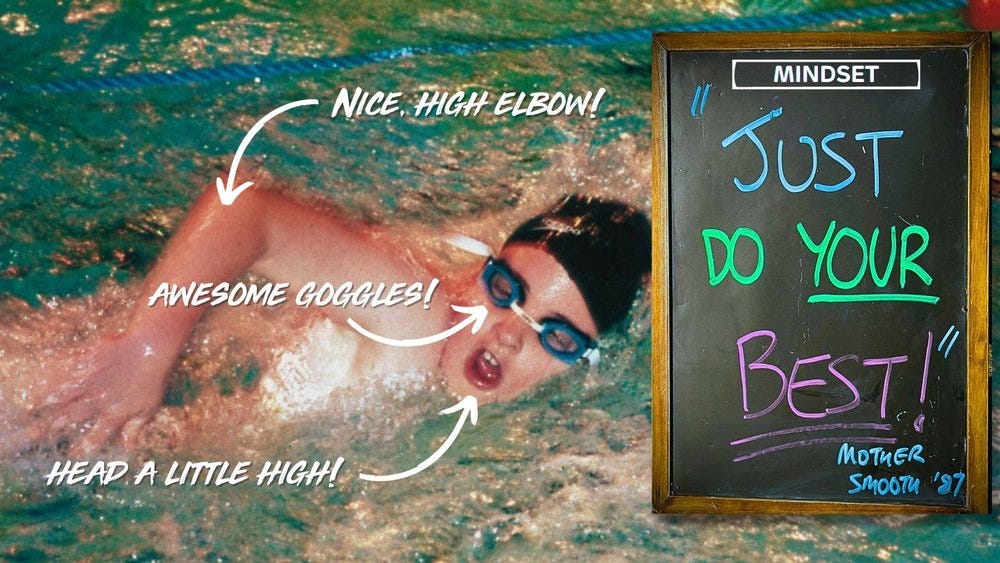 NICE, HIGH ELBOW!
AWESOME GOGGLES!
HEAD A LITTLE HIGH!
MINDSET
"JUST
DO YOUR
BEST!"
MOTHER
SMOOTH '87